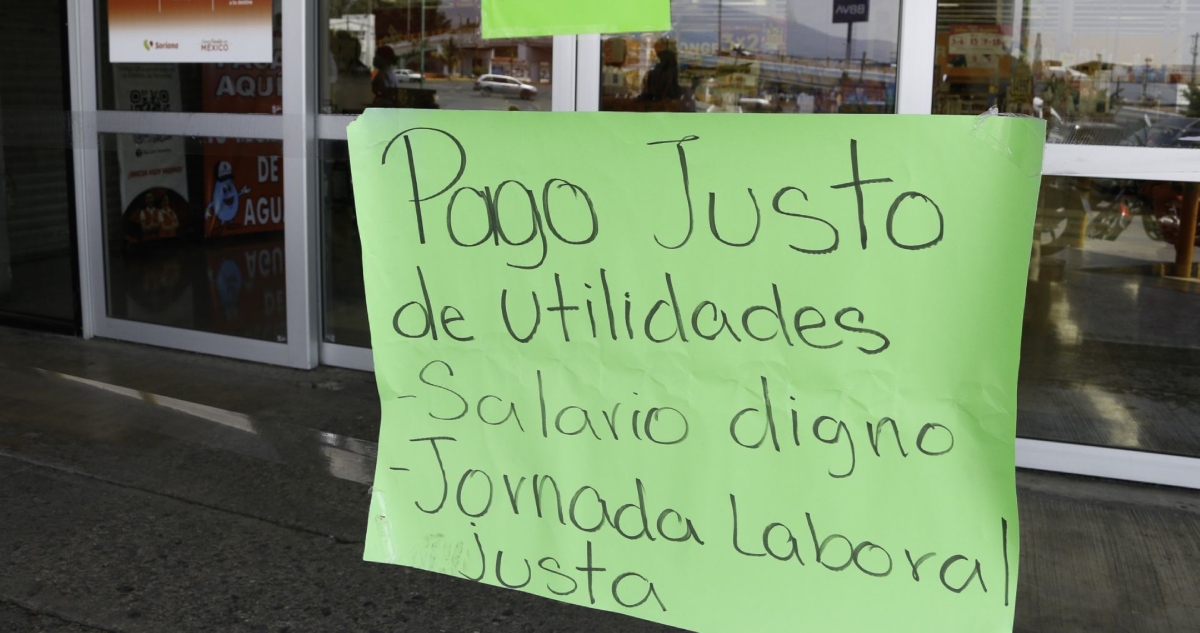 Soriana
MÉXICO
AQUÍ
DE
AGU
BBVA
Pago Justo
de utilidades
-Salario digno
-Jornada Laboral
justa